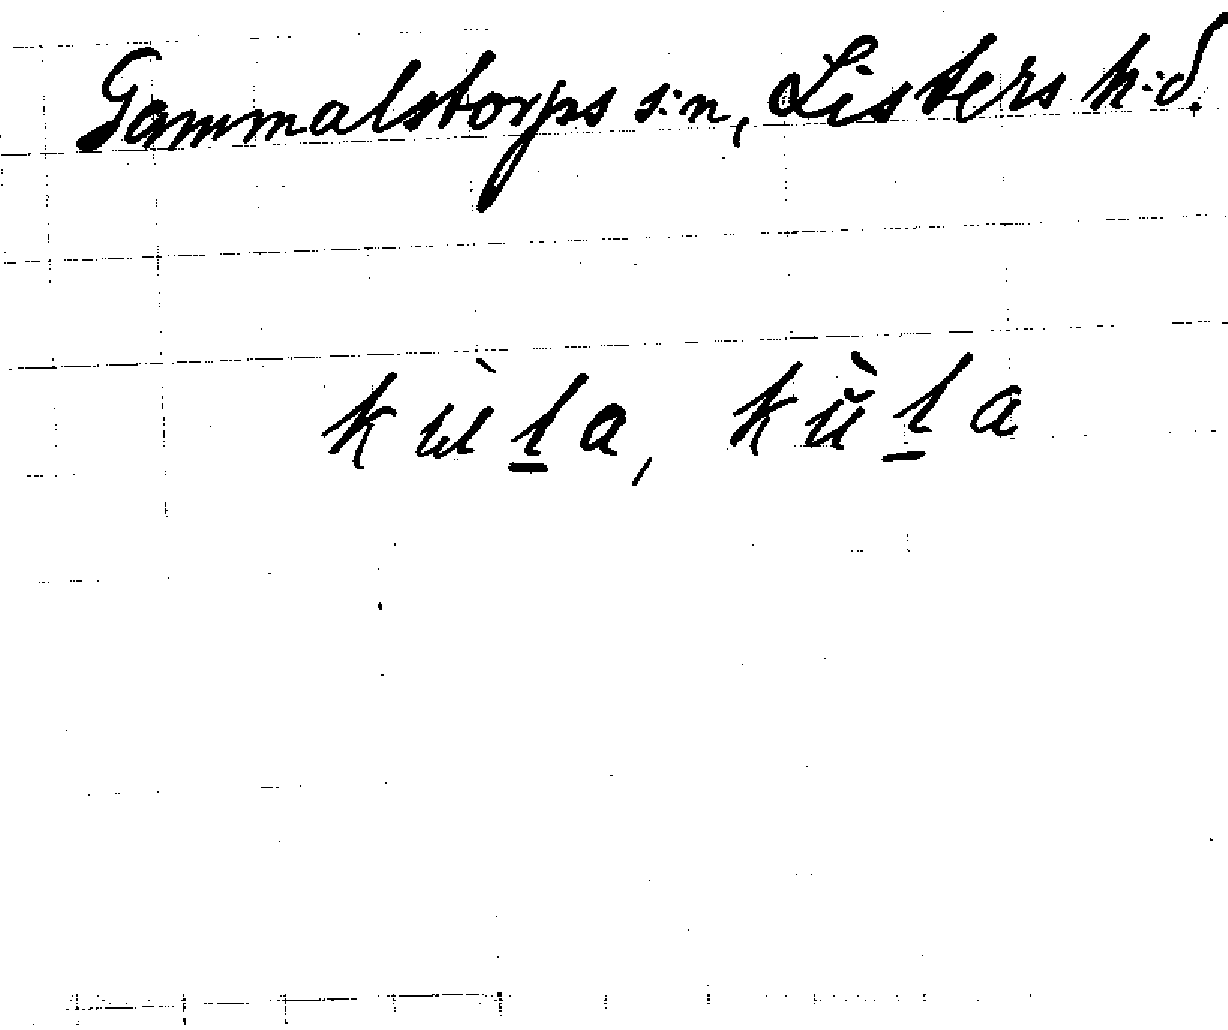 Gammalstorps s:n, Listers h:d.
kùl̲a, kŭ̀l̲a